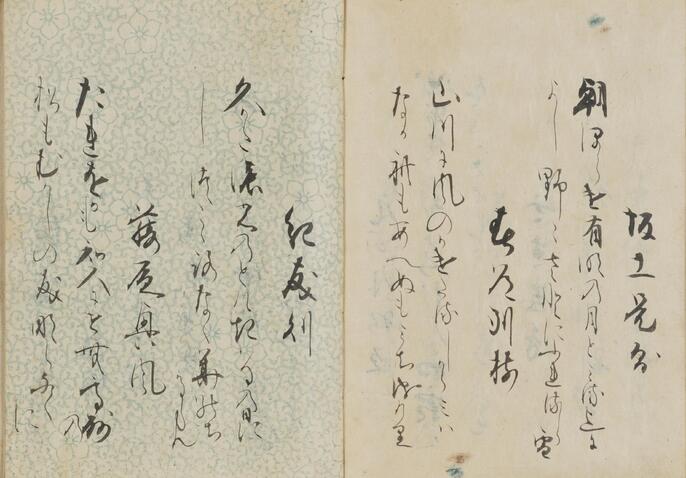 坂上是則
朝ほらけ有明の月とみるまに
よし野のさとにふれる しら雪
春道列樹
山川に風のかけたるしからみは
なかれもあへぬもみちなりけり
紀友則
久かたの
しつ心なく花のち
るらん
藤原興風
たれをかも知人にせむ高砂
の
松もむかしの友ならなく
に